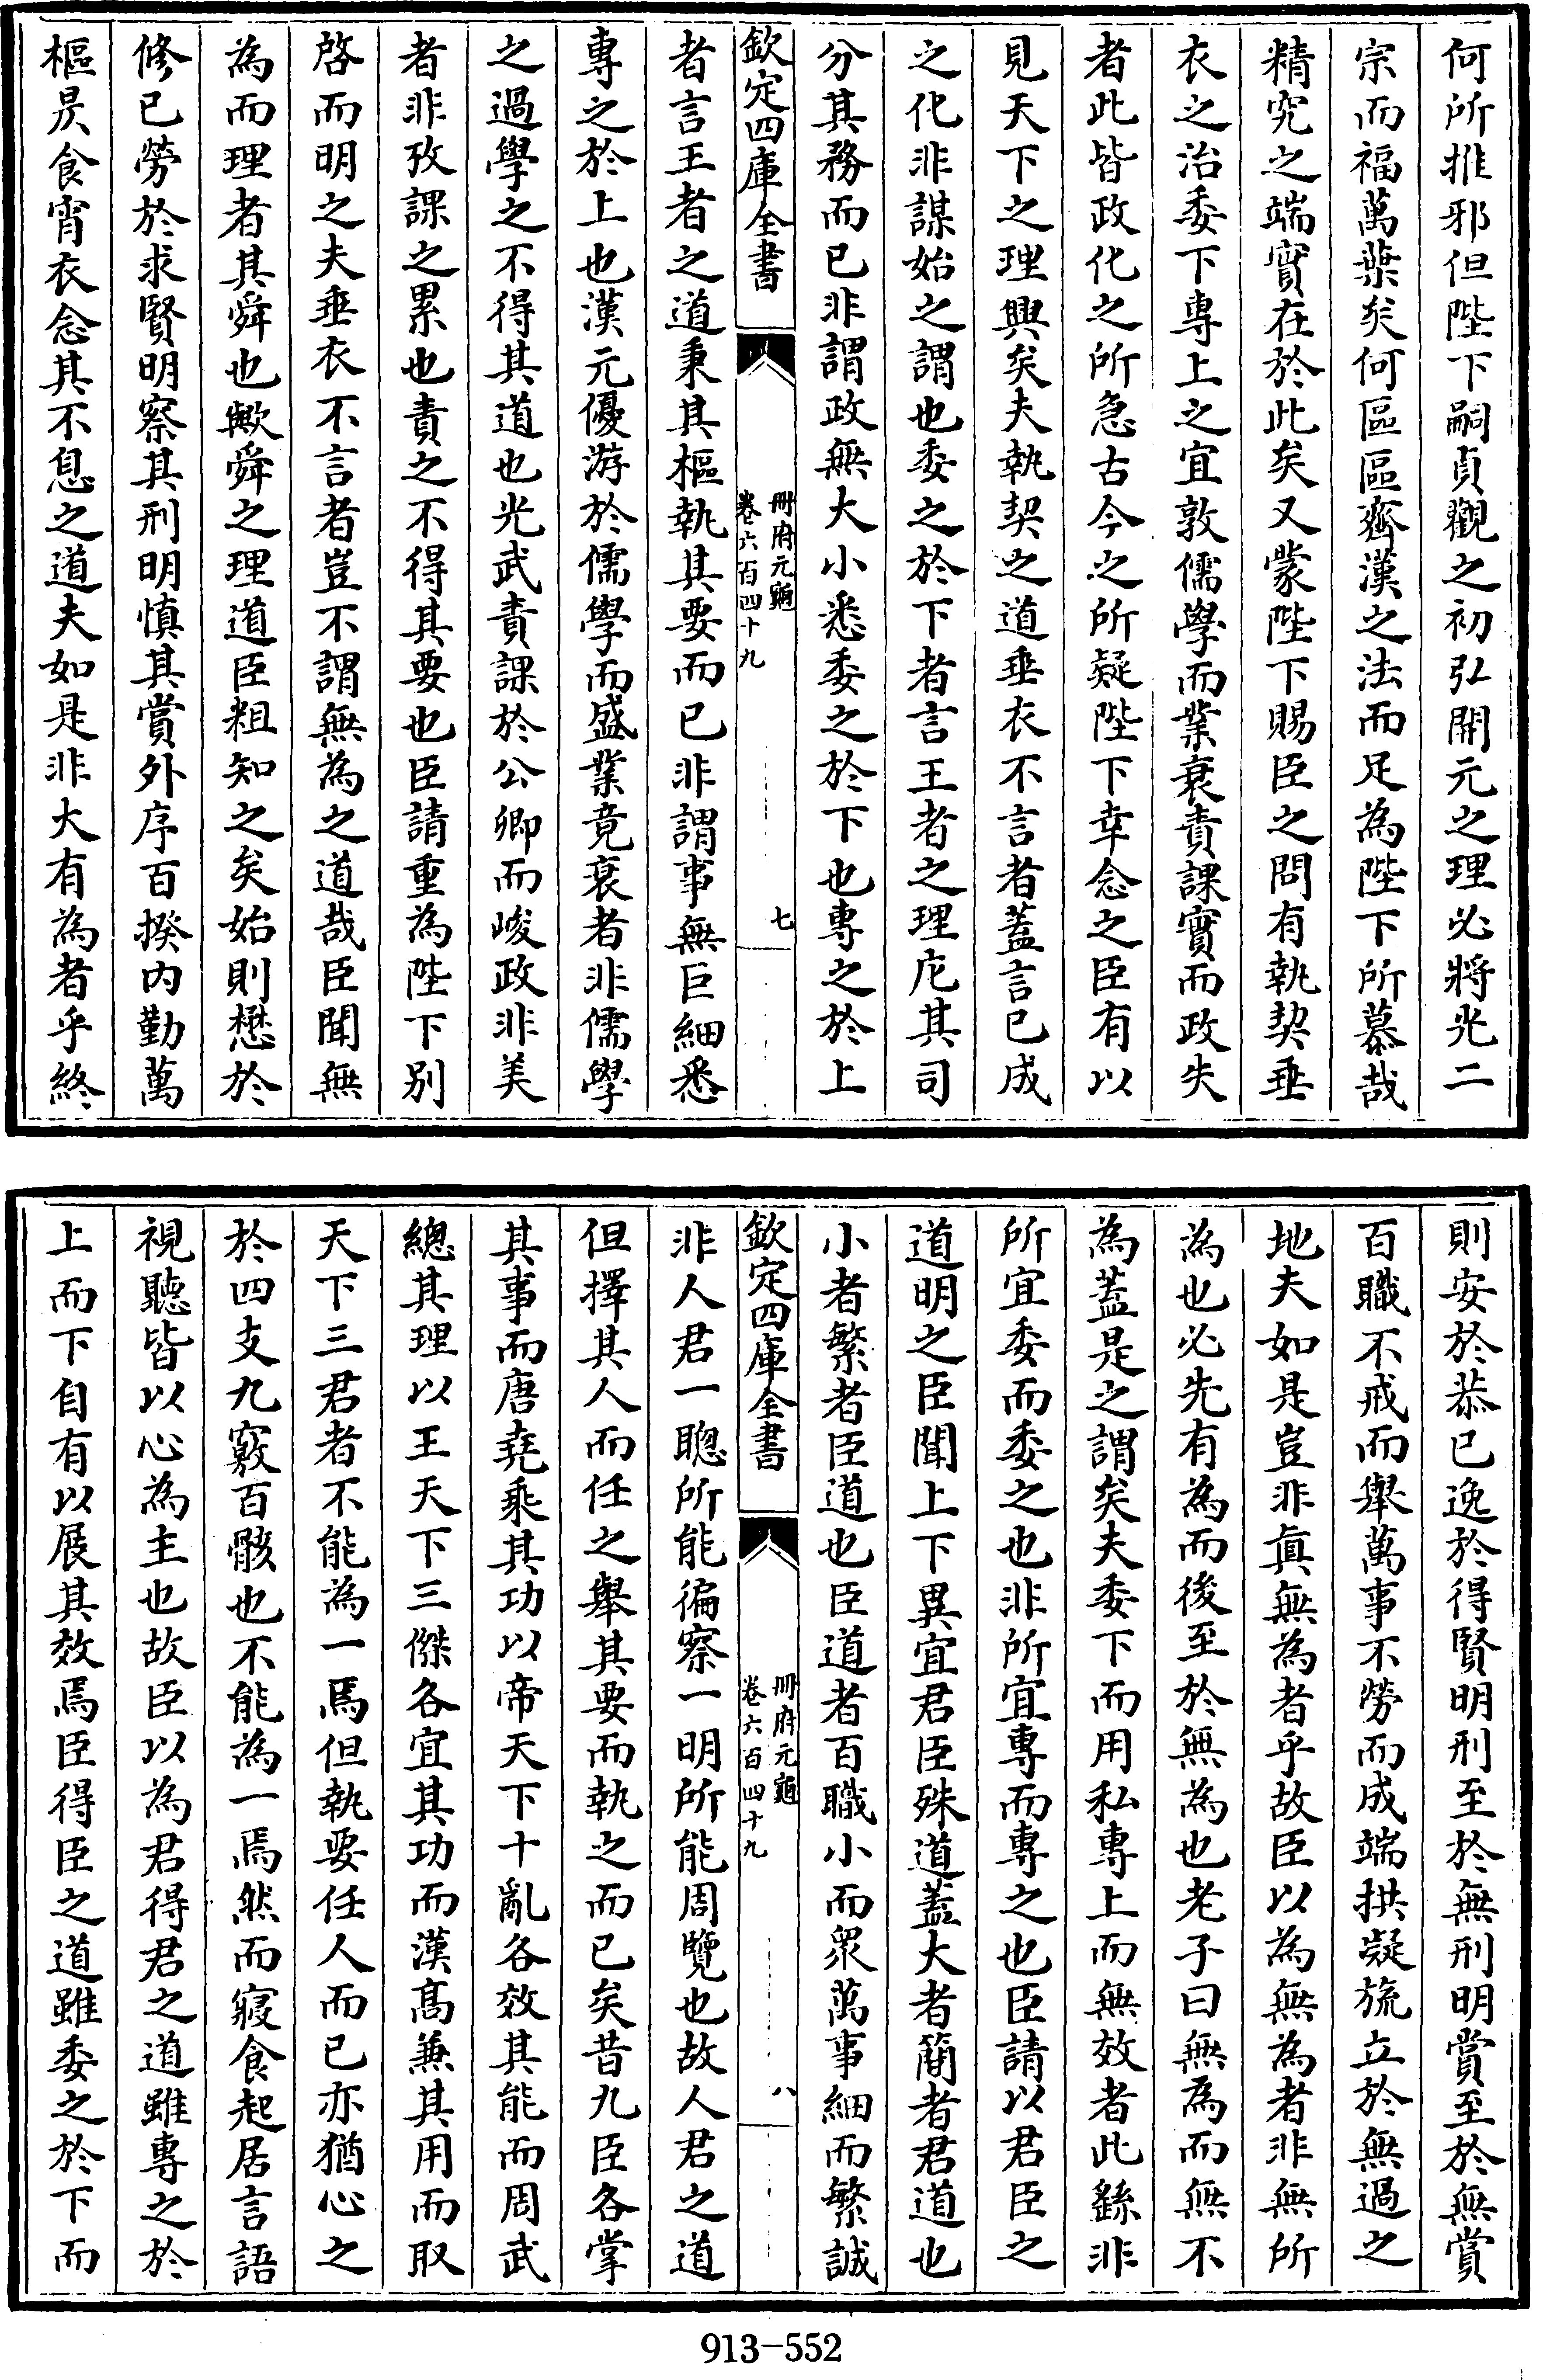 何所推邪但陛下嗣貞觀之初弘開元之理必將光二
宗而福萬葉矣何區區齊漢之法而足為陛下所慕哉
精究之端實在於此矣又蒙陛下賜臣之問有執契垂
衣之治委下專上之宜敦儒學而業衰責課實而政失
者此皆政化之所急古今之所疑陛下幸念之臣有以
見天下之理興矣夫執契之道垂衣不言者蓋言已成
之化非謀始之謂也委之於下者言王者之理庀其司
分其務而已非謂政無大小悉委之於下也專之於上
欽定四庫全書
冊府元龜
卷六百四十九
七
者言王者之道秉其樞執其要而已非謂事無巨細悉
專之於上也漢元優游於儒學而盛業竟衰者非儒學
之過學之不得其道也光武責課於公卿而峻政非美
者非攷課之累也責之不得其要也臣請重為陛下別
啓而明之夫垂衣不言者豈不謂無為之道哉臣聞無
為而理者其舜也歟舜之理道臣粗知之矣始則懋於
修已勞於求賢明察其刑明慎其賞外序百揆内勤萬
樞昃食宵衣念其不息之道夫如是非大有為者乎終
則安於恭已逸於得賢明刑至於無刑明賞至於無賞
百職不戒而舉萬事不勞而成端拱凝旒立於無過之
地夫如是豈非眞無為者乎故臣以為無為者非無所
為也必先有為而後至於無為也老子曰無為而無不
為蓋是之謂矣夫委下而用私專上而無效者此繇非
所宜委而委之也非所宜專而專之也臣請以君臣之
道明之臣聞上下異宜君臣殊道蓋大者簡者君道也
小者繁者臣道也臣道者百職小而眾萬事細而繁誠
欽定四庫全書
冊府元龜
卷六百四十九
八
非人君一聰所能徧察一明所能周覽也故人君之道
但擇其人而任之舉其要而執之而已矣昔九臣各掌
其事而唐堯乘其功以帝天下十亂各效其能而周武
總其理以王天下三傑各宜其功而漢髙兼其用而取
天下三君者不能為一焉但執要任人而已亦猶心之
於四支九竅百骸也不能為一焉然而寢食起居言語
視聽皆以心為主也故臣以為君得君之道雖專之於
上而下自有以展其效焉臣得臣之道雖委之於下而
913-552